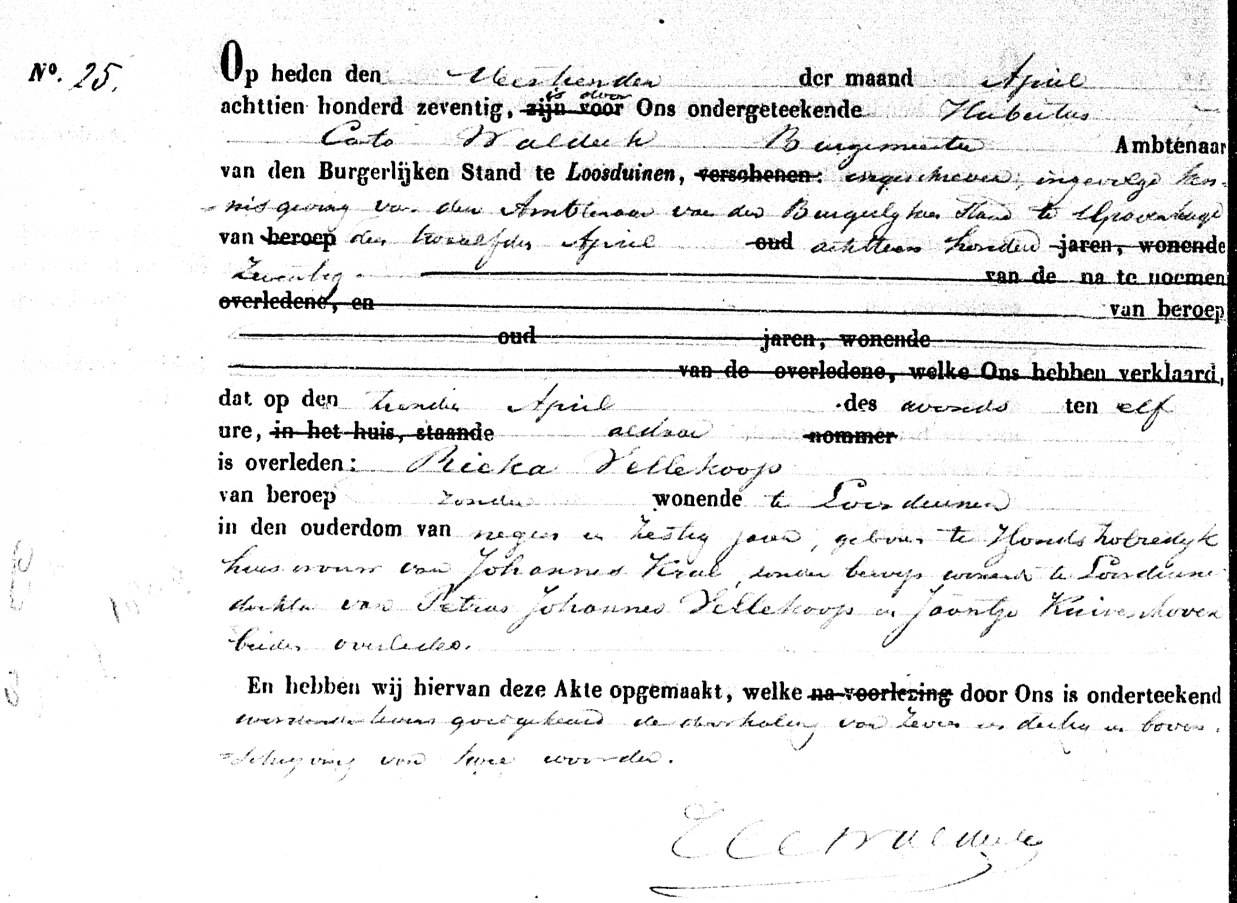 No. 25.
Op heden den Veertienden der maand April
is door
achttien honderd zeventig, zijn voor Ons ondergeteekende Hubertus
Cato Waldeck Burgemeester Ambtenaar
van den Burgerlijken Stand te Loosduinen, verschenen: ingeschreven, ingevolge ken-
nisgeving van den Ambtenaar van den Burgerlyken Stand te 's Gravenhage
van beroep den twaalfden April oud achttien honderd jaren, wonende
Zeventig van de na te noemen
overledene, en van beroep
oud jaren, wonende
van de overledene, welke Ons hebben verklaard,
dat op den tienden April des avonds ten elf
ure, in het huis, staande aldaar nommer
is overleden: Rieka Vellekoop
van beroep zonder wonende te Loosduinen
in den ouderdom van negen en zestig jaren, geboren te Honds holredyk
huisvrouw van Johannes Kral, zonder beroep wonende te Loosduinen
dochter van Petrus Johannes Vellekoop en Jaantje Kuivenhoven
beiden overleden.
En hebben wij hiervan deze Akte opgemaakt, welke na voorlezing door Ons is onderteekend
wordende tevens goedgekeurd de doorhaling van zeven en dertig en boven-
=schryving van twee woorden.
HCWaldeck